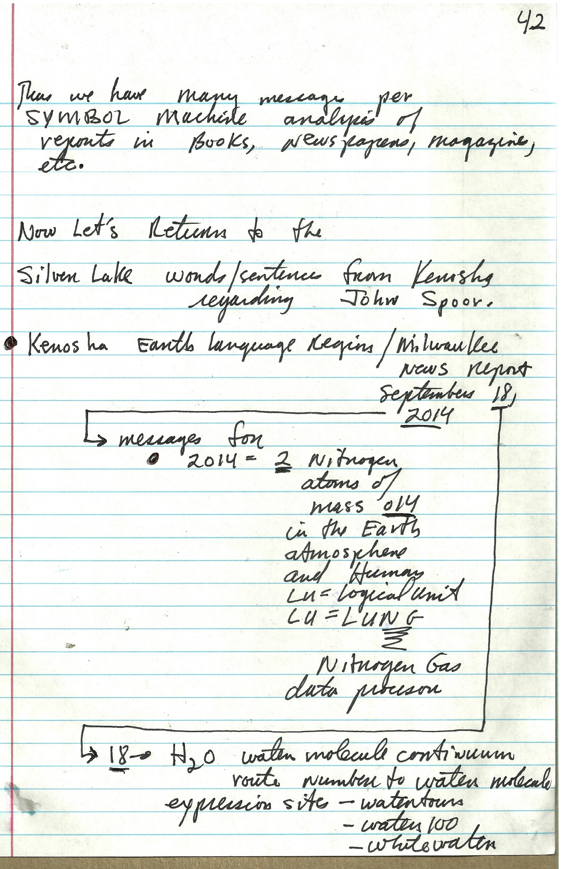 42
Thus we have many messages per
SYMBOL Machine analysis of
reports in Books, Newspapers, magazine,
etc.
Now Let's Return to the
Silver Lake words/sentence from Kenosha
regarding John Spoor.
• Kenosha Earth language Region/Milwaukee
News Report
September 18,
2014
→ messages for
• 2014 = 2 Nitrogen
atoms of
mass 014
in the Earth
atmosphere
and Human
LU = Logical Unit
LU = LUNG
Nitrogen Gas
data processor
→ 18 → H2O water molecule continuum
route number to water molecule
expression sites - watertown
- water 100
- whitewater